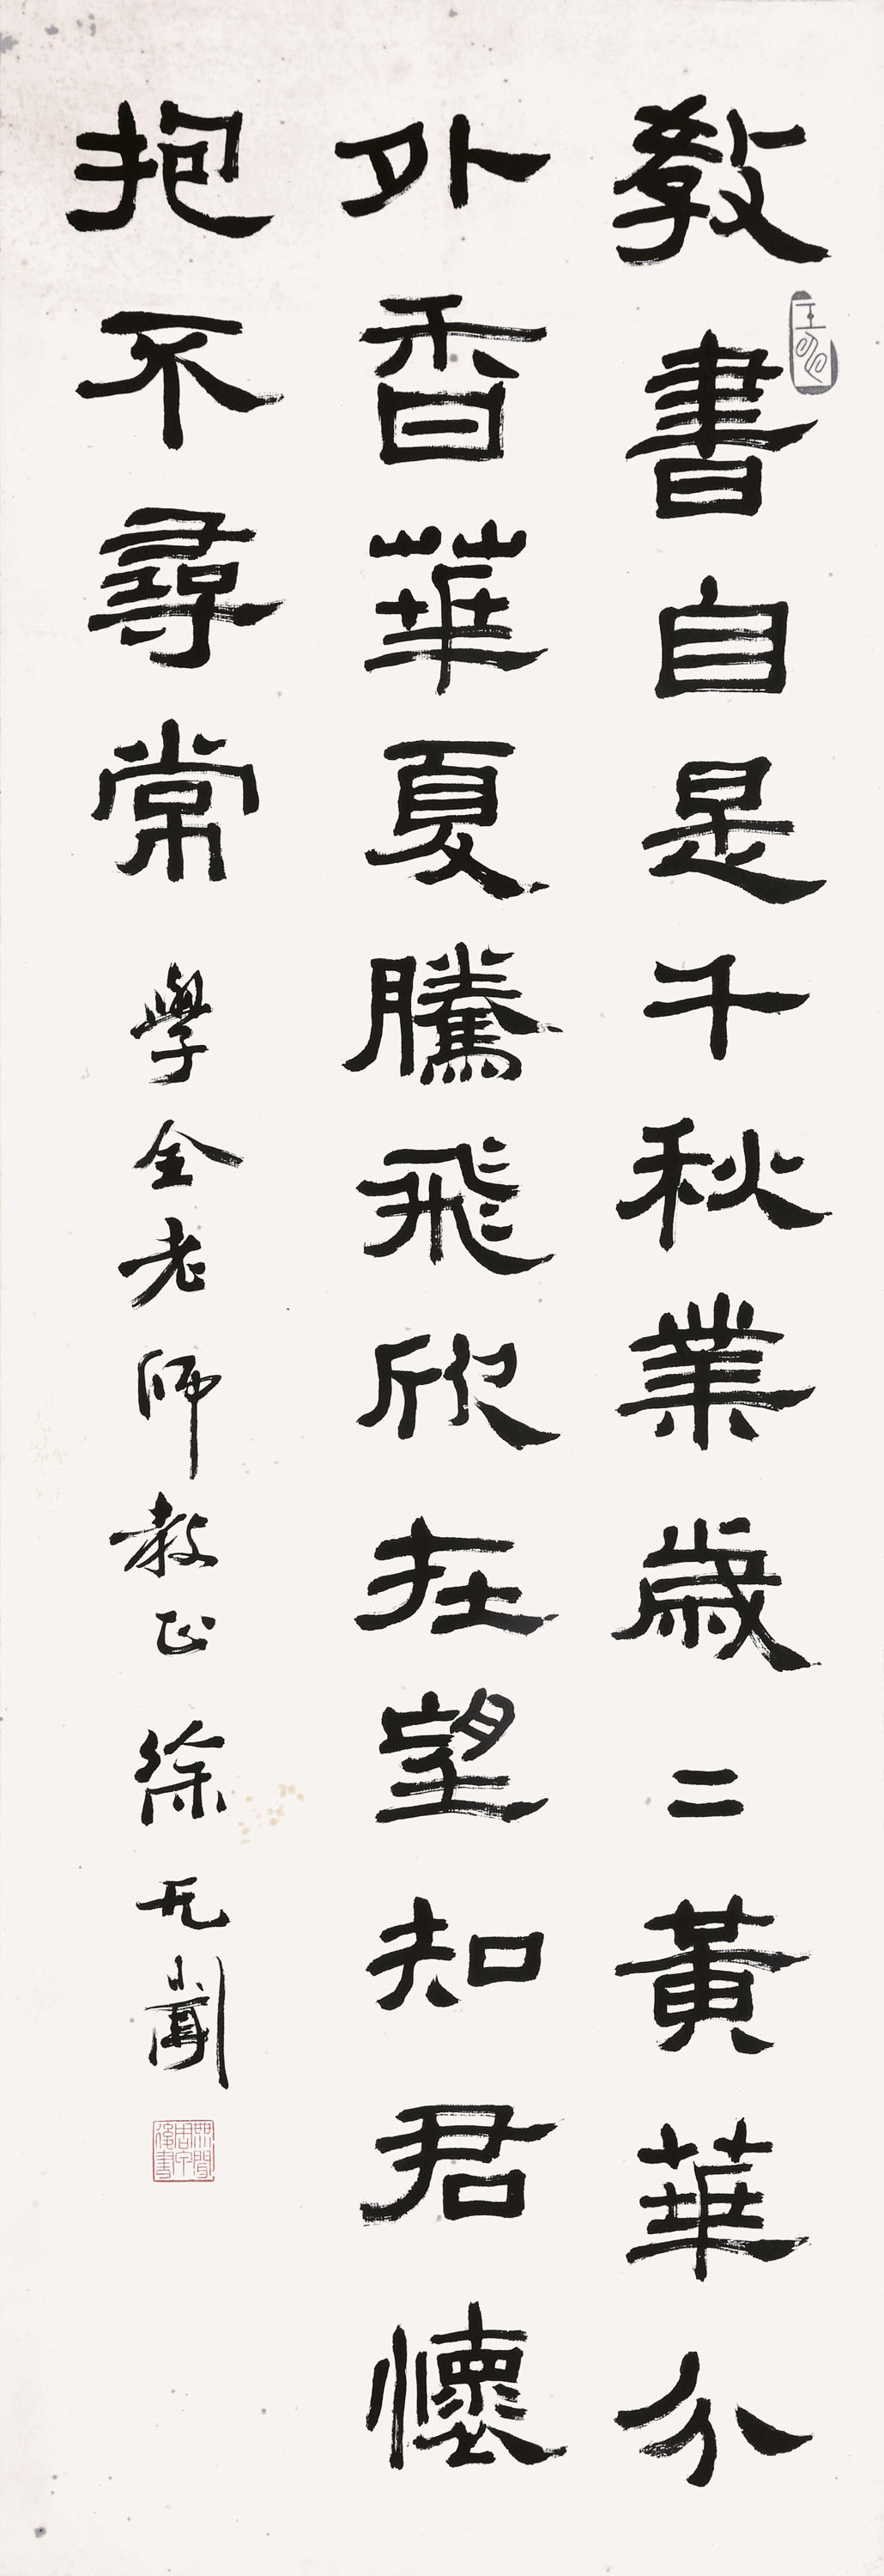 教書自是千秋業歲二黃華分
外香華夏騰飛欣在望知君懷
抱不尋常
學全老師教正 徐无聞